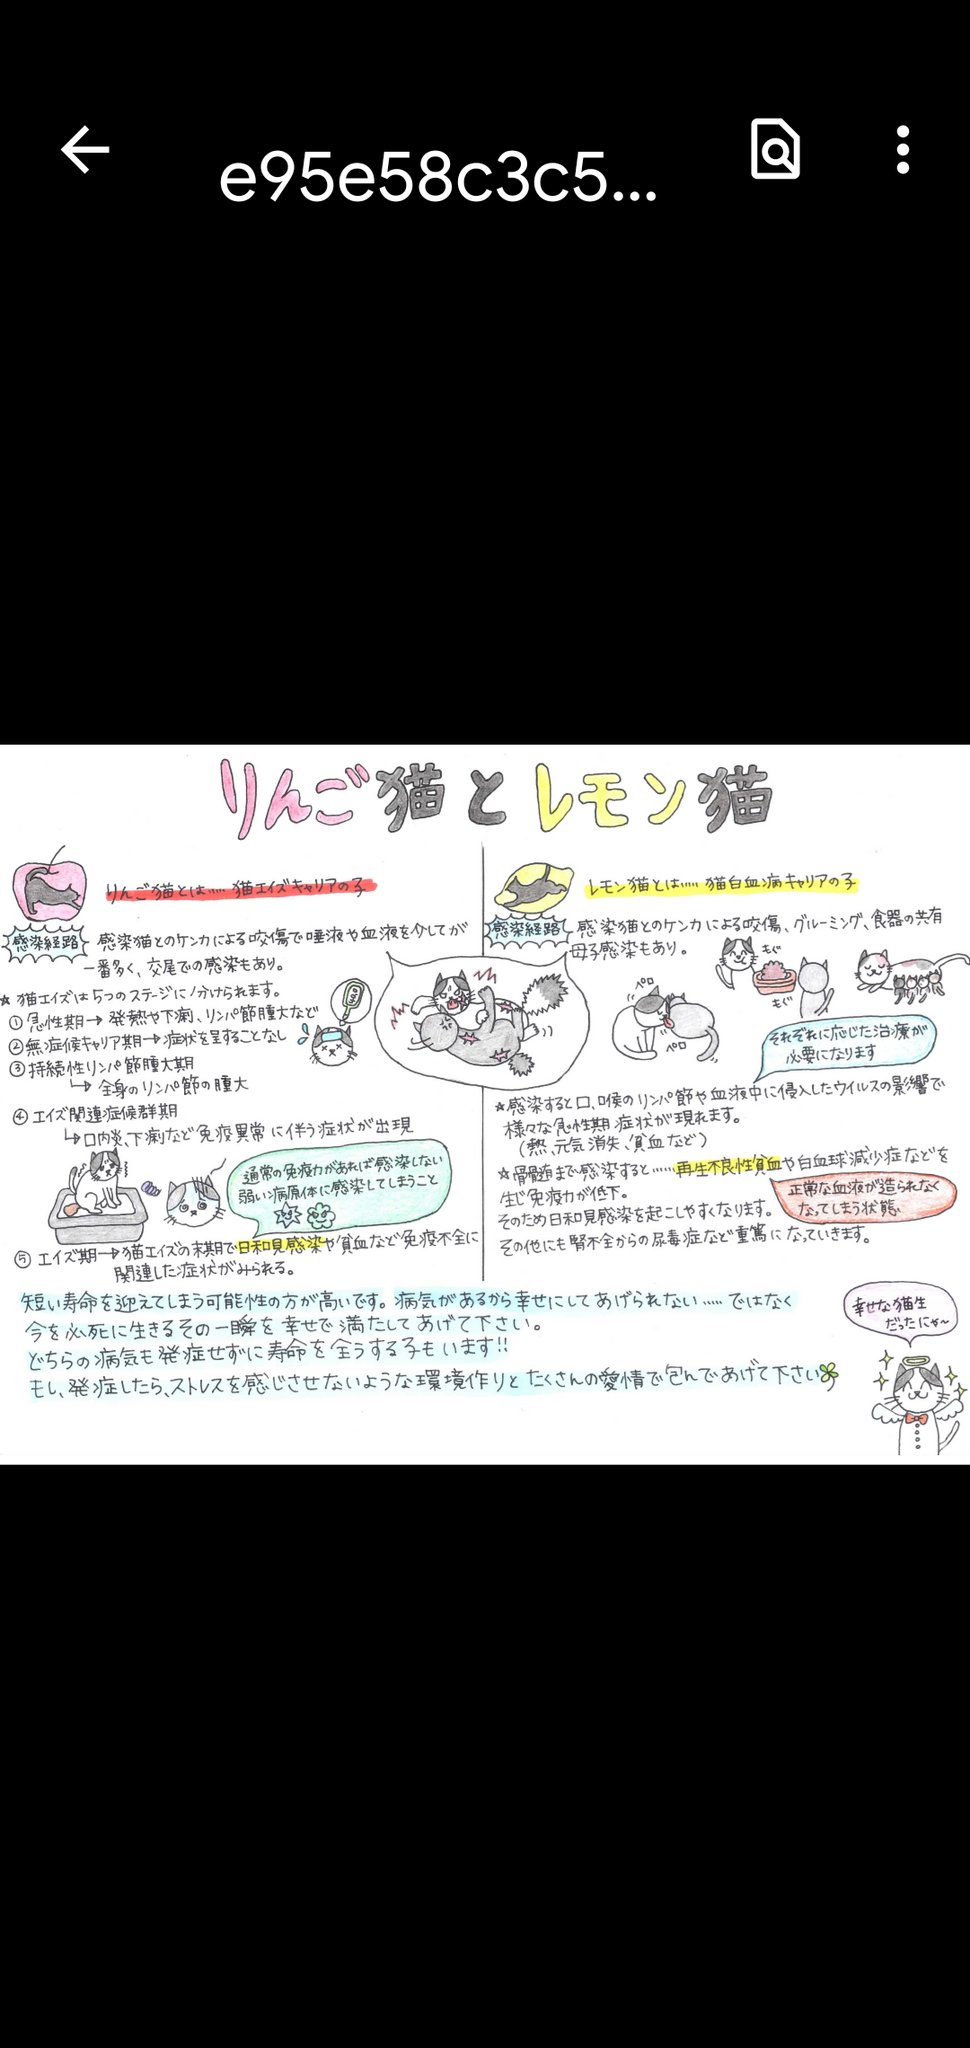 e95e58c3c5...
りんご猫とレモン猫
りんご猫とは…… 猫エイズキャリアの子
感染経路
感染猫とのケンカによる咬傷で唾液や血液を介してが
一番多く、交尾での感染もあり。
★ 猫エイズは5つのステージに分けられます。
① 急性期→ 発熱や下痢、リンパ節腫大など
② 無症候キャリア期→症状を呈することなし
③ 持続性リンパ節腫大期
↳ 全身のリンパ節の腫大
④ エイズ関連症候群期
↳口内炎、下痢など免疫異常に伴う症状が出現
通常の免疫力があれば感染しない
弱い病原体に感染してしまうこと
⑤ エイズ期→猫エイズの末期で日和見感染や貧血など免疫不全に
関連した症状がみられる。
レモン猫とは…… 猫白血病キャリアの子
感染経路
感染猫とのケンカによる咬傷、グルーミング、食器の共有
母子感染もあり。
もぐ
もぐ
ペロ
ペロ
それぞれに応じた治療が
必要になります
★感染すると口、喉のリンパ節や血液中に侵入したウイルスの影響で
様々な急性期症状が現れます。
(熱、元気消失、貧血など)
☆骨髄まで感染すると……再生不良性貧血や白血球減少症などを
生じ免疫力が低下。
そのため日和見感染を起こしやすくなります。
その他にも腎不全からの尿毒症など重篤になっていきます。
正常な血液が造られなく
なってしまう状態
短い寿命を迎えてしまう可能性の方が高いです。病気があるから幸せにしてあげられない…… ではなく
今を必死に生きるその一瞬を幸せで満たしてあげて下さい。
どちらの病気も発症せずに寿命を全うする子もいます!!
もし、発症したら、ストレスを感じさせないような環境作りとたくさんの愛情で包んであげて下さい
幸せな猫生
だったにゃ〜